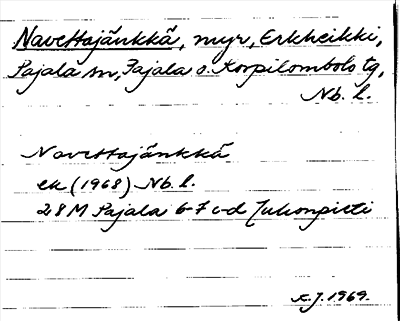 Navettajänkkä, myr, Erkheikki,
Pajala sn, Pajala o. Korpilombolo tg,
Nb. l.
Navettajänkkä
ek (1968) Nb. l.
28M Pajala 6-7 c-d Juhonpieti
K.J. 1969.